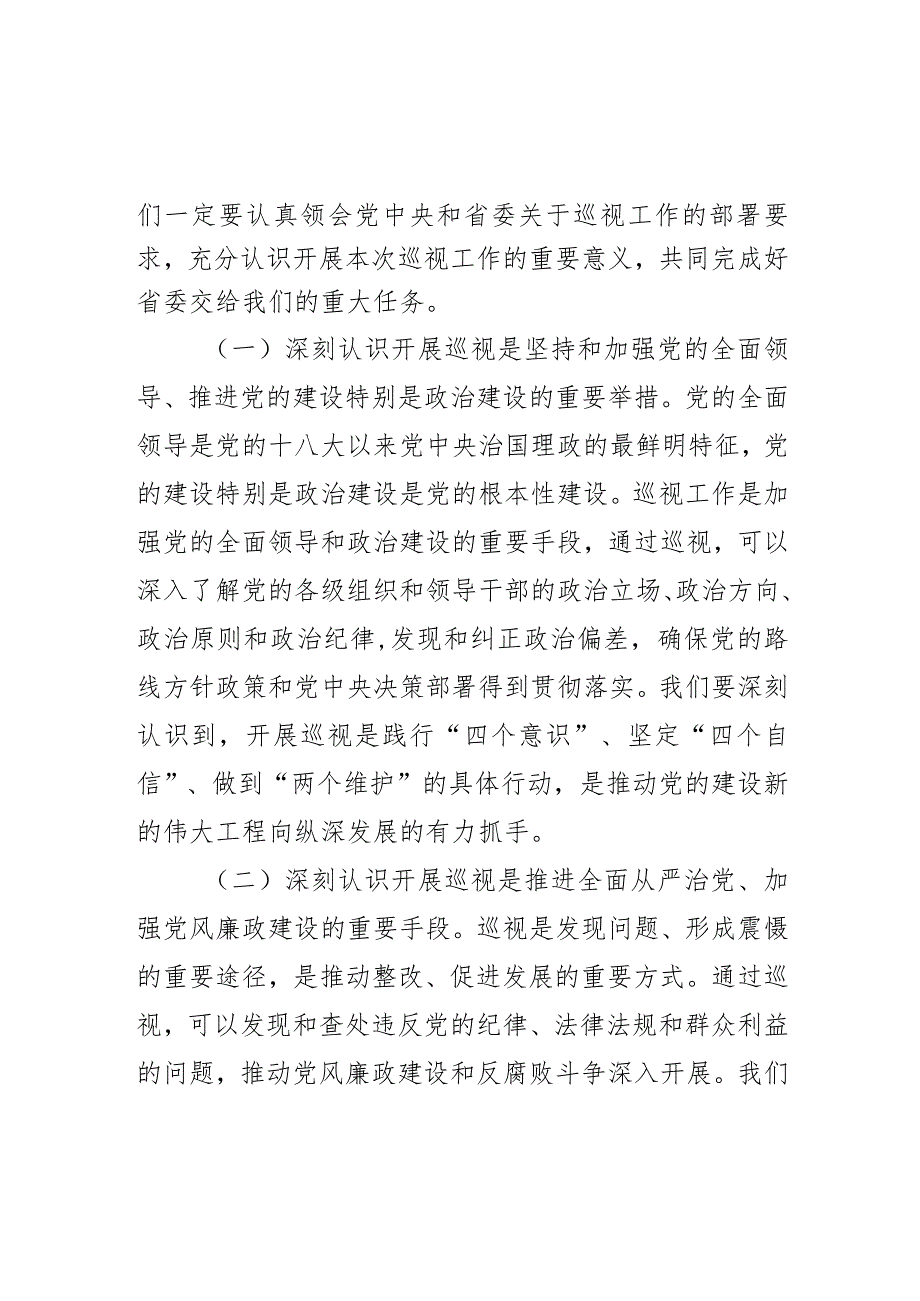 们一定要认真领会党中央和省委关于巡视工作的部署要
求，充分认识开展本次巡视工作的重要意义，共同完成好
省委交给我们的重大任务。
（一）深刻认识开展巡视是坚持和加强党的全面领
导、推进党的建设特别是政治建设的重要举措。党的全面
领导是党的十八大以来党中央治国理政的最鲜明特征，党
的建设特别是政治建设是党的根本性建设。巡视工作是加
强党的全面领导和政治建设的重要手段，通过巡视，可以
深入了解党的各级组织和领导干部的政治立场、政治方向、
政治原则和政治纪律,发现和纠正政治偏差，确保党的路
线方针政策和党中央决策部署得到贯彻落实。我们要深刻
认识到，开展巡视是践行“四个意识”、坚定“四个自
信”、做到“两个维护”的具体行动，是推动党的建设新
的伟大工程向纵深发展的有力抓手。
（二）深刻认识开展巡视是推进全面从严治党、加
强党风廉政建设的重要手段。巡视是发现问题、形成震慑
的重要途径，是推动整改、促进发展的重要方式。通过巡
视，可以发现和查处违反党的纪律、法律法规和群众利益
的问题，推动党风廉政建设和反腐败斗争深入开展。我们